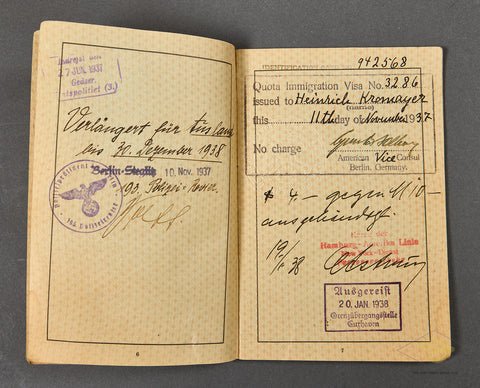 27 JUN. 1937
Gedser.
Verlängert für Ausland
bis 30. Dezember 1938
Berlin-Steglitz 10 Nov. 1937
193. Polizei-Revier
6
IDENTIFICATION
942568
Quota Immigration Visa No. 3286
issued to Heinrich Kromayer
(name)
this 11th day of November 1937
No charge
American Vice Consul
Berlin, Germany.
$ 4.— gegen M 10—
ausgehändigt.
Hamburg-Amerika Linie
19/1 38
Ausgereist
20. JAN. 1938
Grenzübergangsstelle
Cuxhaven
7